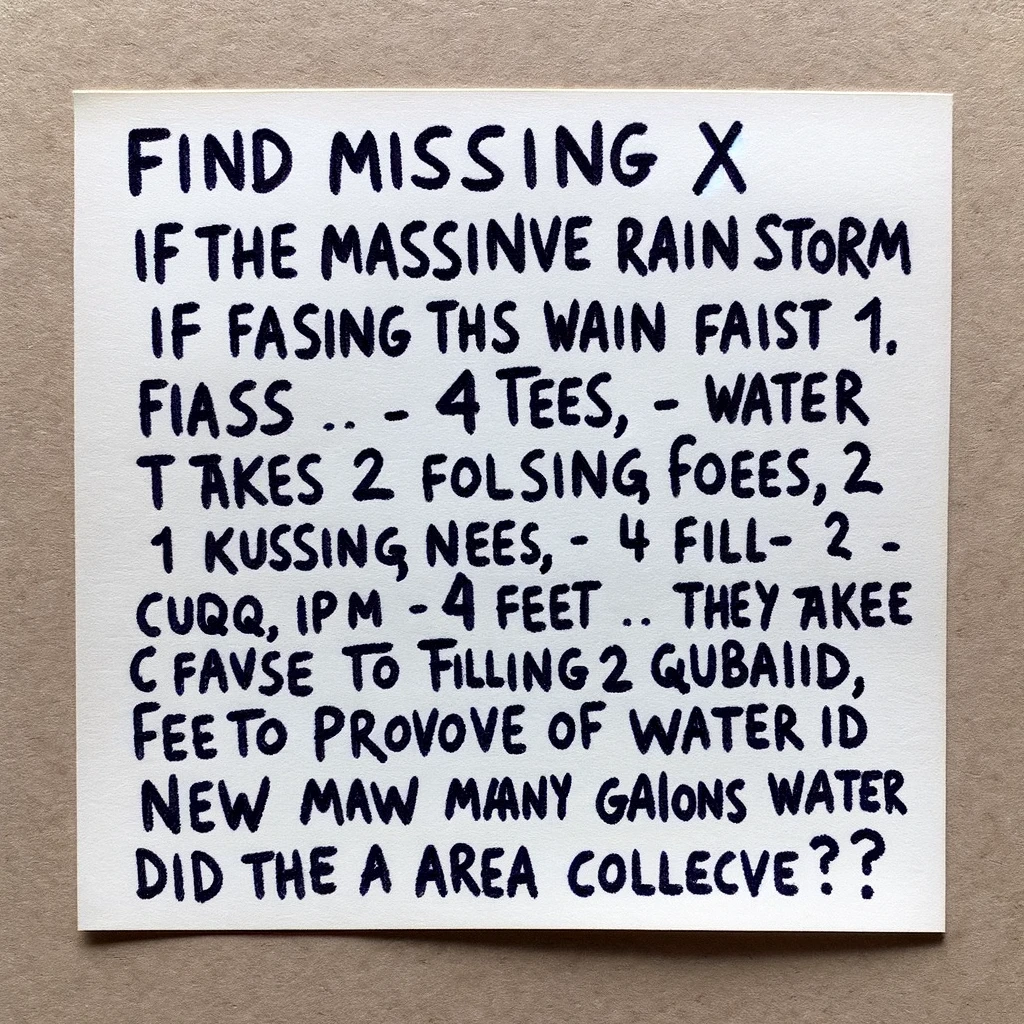 FIND MISSING X
IF THE MASSINVE RAIN STORM
IF FASING THS WAIN FAIST 1.
FIASS .. - 4 TEES, - WATER
TAKES 2 FOLSING FOEES, 2
1 KUSSING NEES, - 4 FILL- 2 -
CUQQ, IPM - 4 FEET .. THEY AKEE
C FAVSE TO FILLING 2 QUBAIID,
FEE TO PROVOVE OF WATER ID
NEW MAW MANY GAIONS WATER
DID THE A AREA COLLECVE??